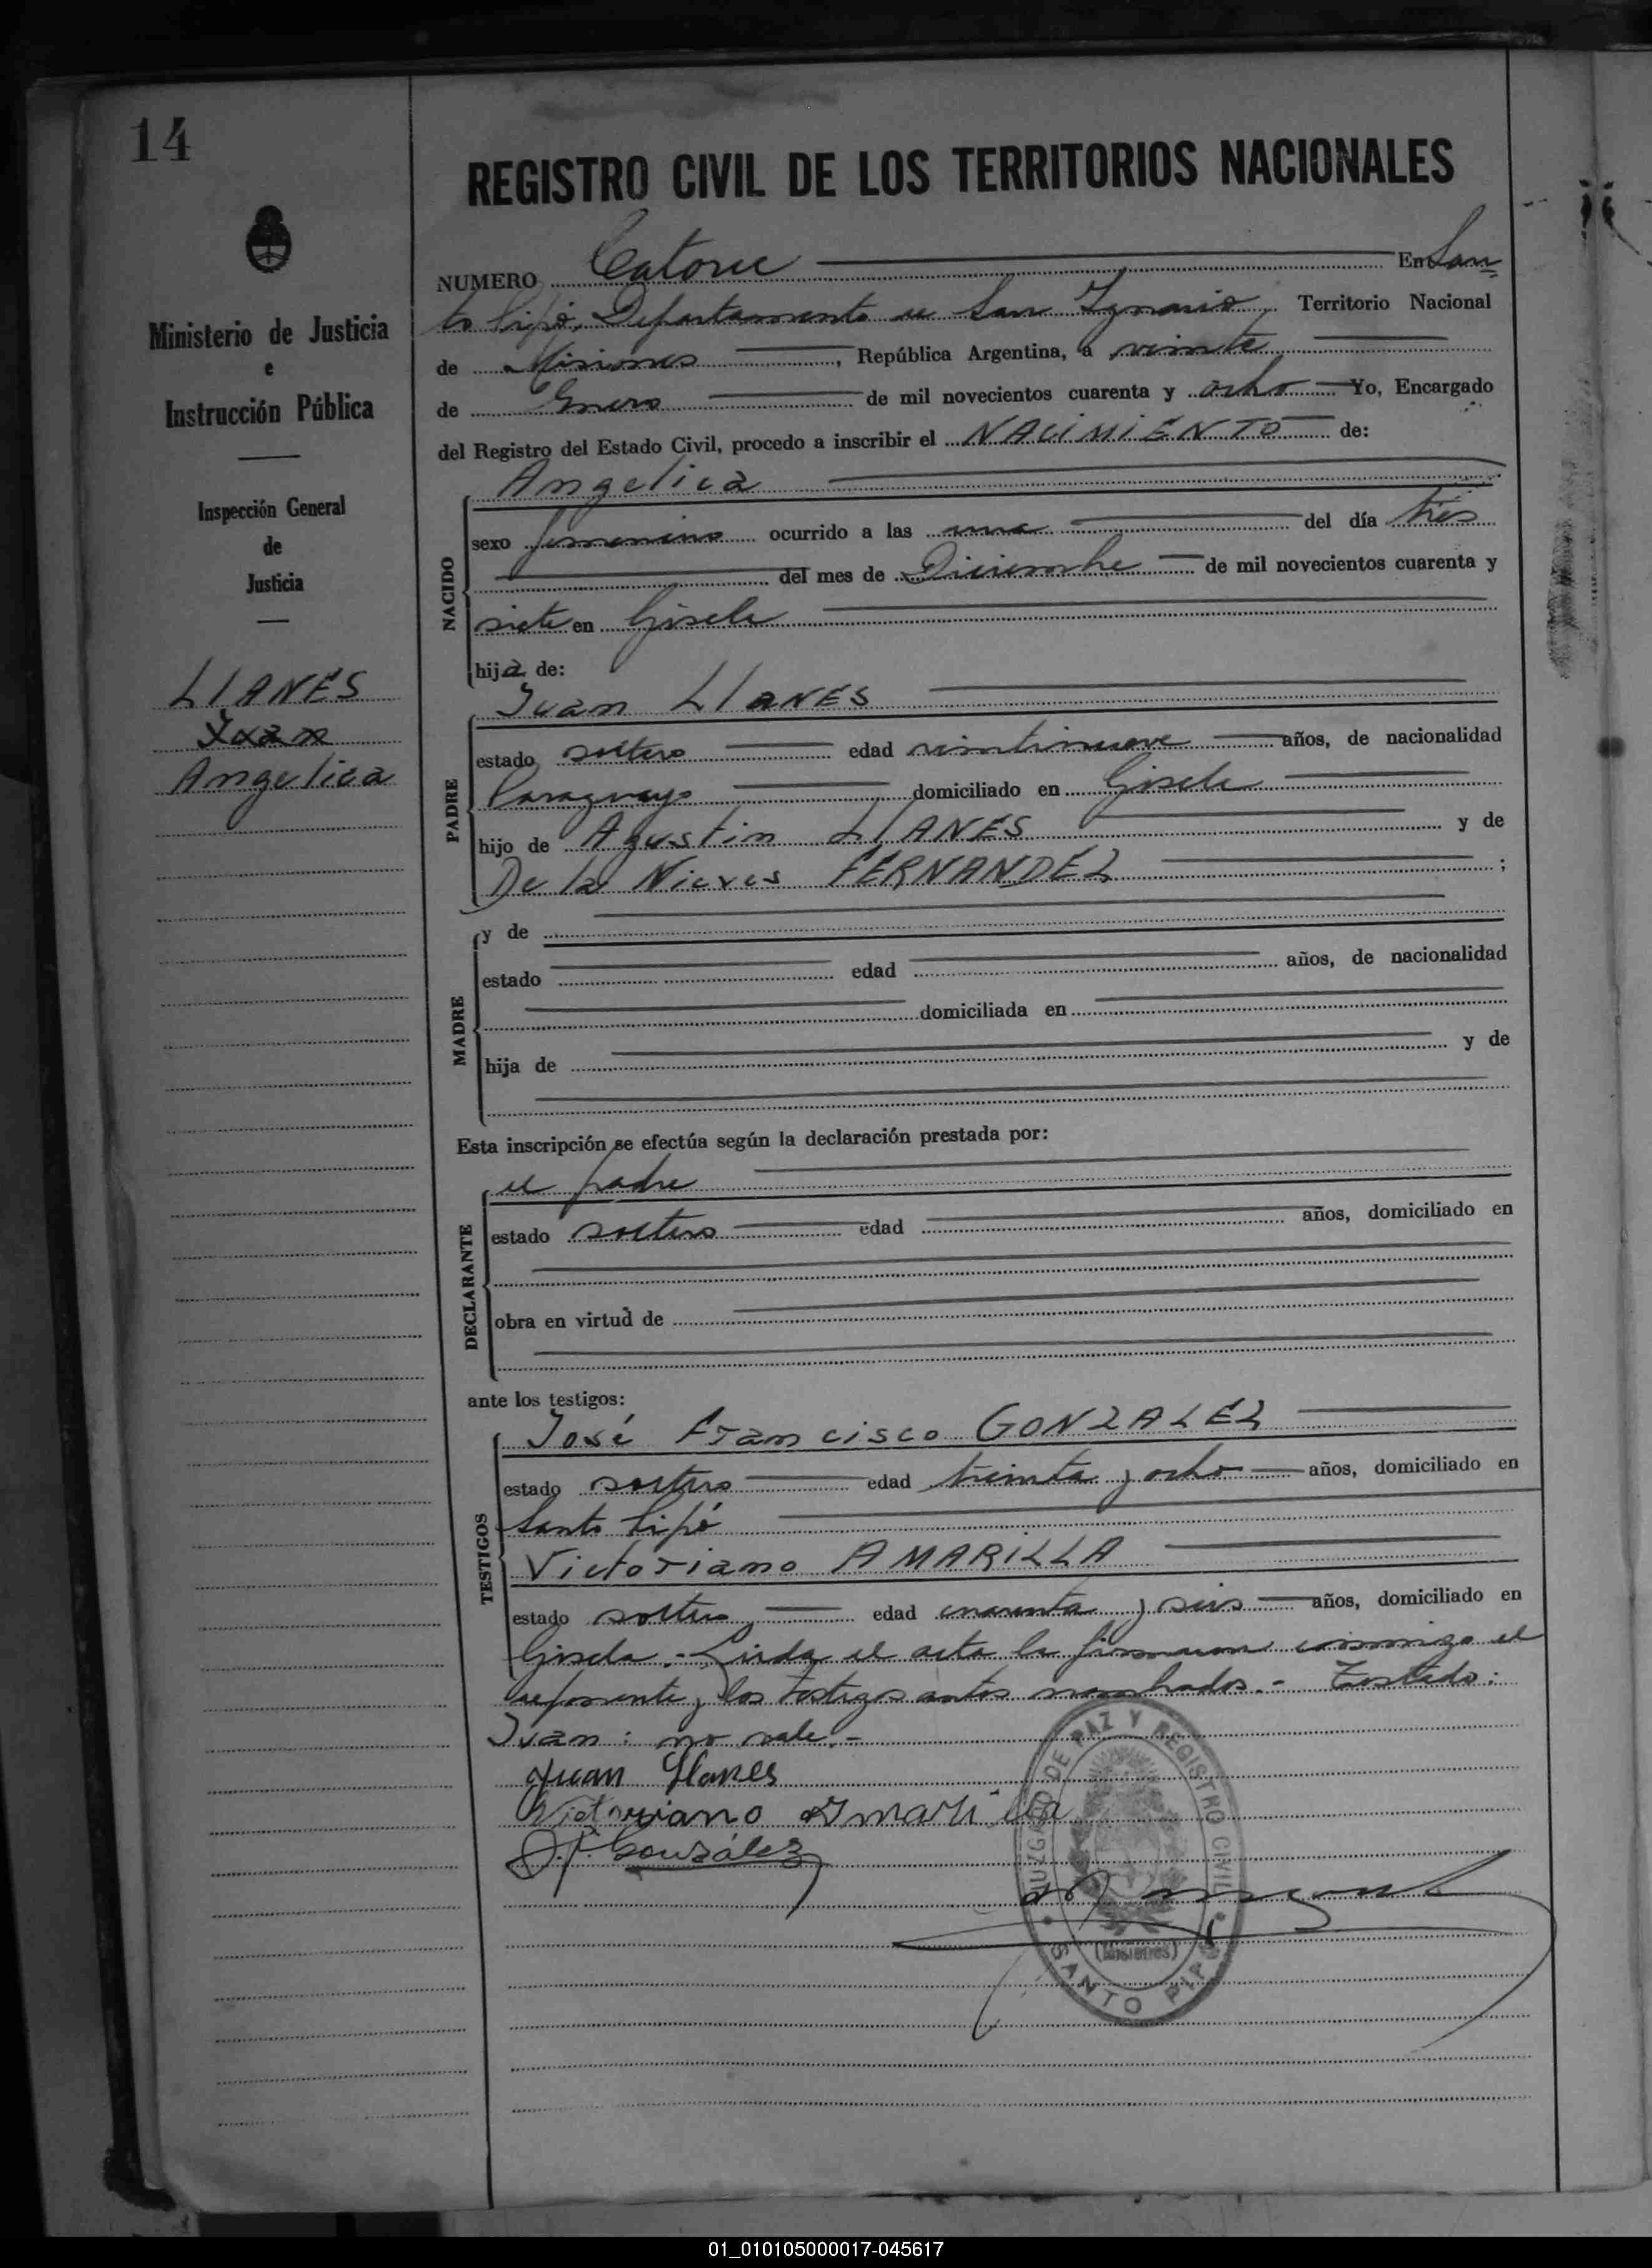 14
REGISTRO CIVIL DE LOS TERRITORIOS NACIONALES
Ministerio de Justicia
e
Instrucción Pública
Inspección General
de
Justicia
LlANES
Juan
Angelica
NUMERO Catorce En San=
to Pipó, Departamento de San Ignacio, Territorio Nacional
de Misiones, República Argentina, a veinte
de Enero de mil novecientos cuarenta y ocho Yo, Encargado
del Registro del Estado Civil, procedo a inscribir el NACIMIENTO de:
NACIDO
Angelica
sexo femenino ocurrido a las una del día tres
del mes de Diciembre de mil novecientos cuarenta y
siete en Gisela
hija de:
PADRE
Juan LlANES
estado soltero edad veintinueve años, de nacionalidad
Paraguayo domiciliado en Gisela
hijo de Agustin LlANES y de
De la Nieves FERNANDEZ ;
MADRE
y de
estado edad años, de nacionalidad
domiciliada en
hija de y de
Esta inscripción se efectúa según la declaración prestada por:
DECLARANTE
el padre
estado soltero edad años, domiciliado en
obra en virtud de
ante los testigos:
TESTIGOS
José Francisco GONZALEZ
estado soltero edad treinta y ocho años, domiciliado en
Santo Pipó
Victoriano AMARILLA
estado soltero edad cuarenta y seis años, domiciliado en
Gisela.- Leída el acta la firmaron conmigo el
exponente y los testigos antes nombrados.- Testado:
Juan: no vale.-
Juan Llanes
Victoriano Amarilla
J.F. González
JUZGADO DE PAZ Y REGISTRO CIVIL
(Misiones)
SANTO PIPÓ
01_010105000017-045617